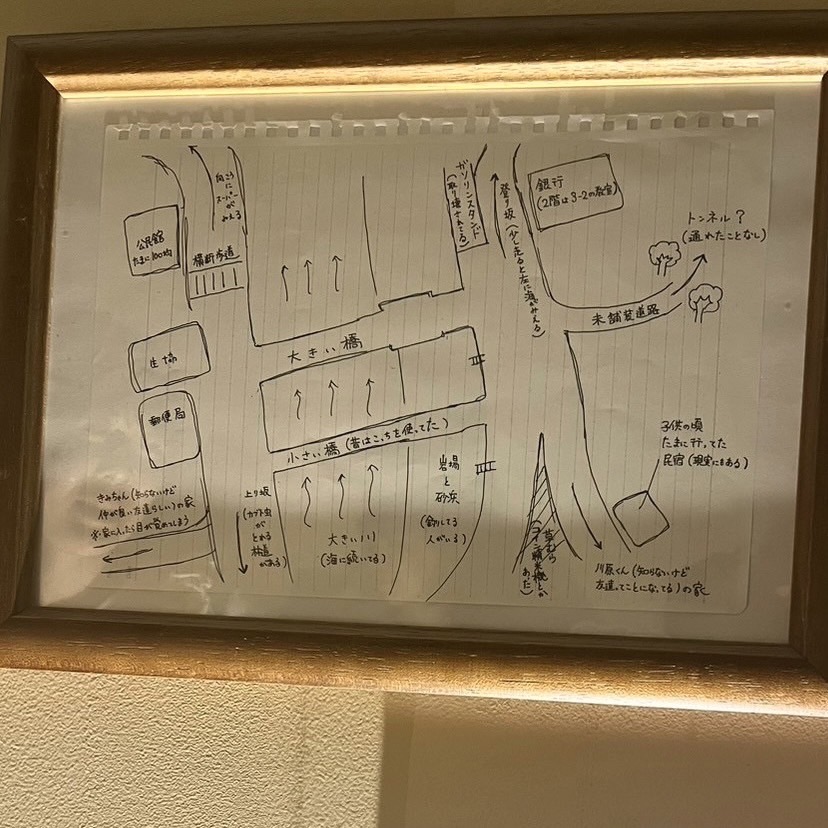 公民館
たまに100均
向こうに
スーパーが
みえる
横断歩道
ガソリンスタンド
(取り壊されてる)
登り坂(少し走ると左に海がみえる)
銀行
(2階は3-2の教室)
トンネル?
(通れたことなし)
未舗装道路
大きい橋
生協
郵便局
小さい橋(昔はこっちを使ってた)
きみちゃん(知らないけど
仲が良い友達らしい)の家
※家に入ったら目が覚めてしまう
上り坂
(カブト虫が
とれる
林道
がある)
大きい川
(海に続いてる)
岩場
と
砂浜
(釣りしてる
人がいる)
草むら
(コイン精米機とか
あった)
子供の頃
たまに行ってた
民宿(現実にもある)
川原くん(知らないけど
友達ってことになってる)の家